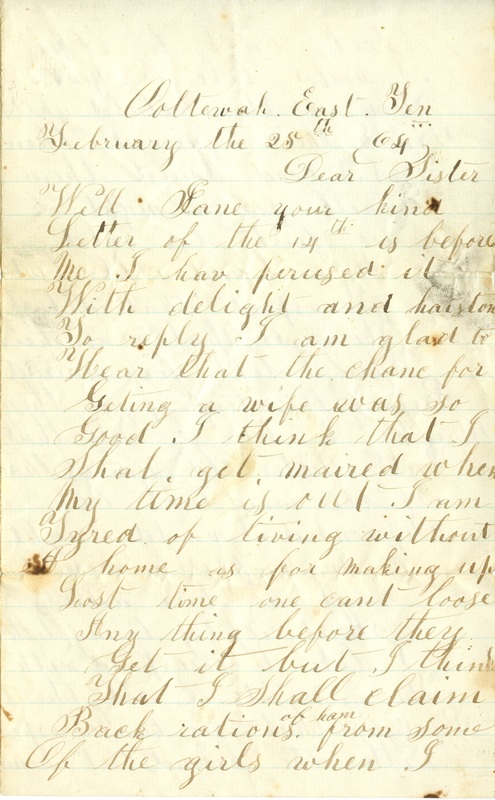 Coltewah. East. Ten
February the 28th 64
Dear Sister
Will Jane your kind
Letter of the 14th is before
Me I hav perused it
With delight and haiston
To reply I am glad to
Hear that the chane for
Geting a wife was so
Good. I think that I
Shal. get. maired when
My time is out I am
Tyred of living without
A home as for making up
Lost time one cant loose
Any thing before they
Get it but I think
That I Shall claim
Back rations. of ham from some
Of the girls when I